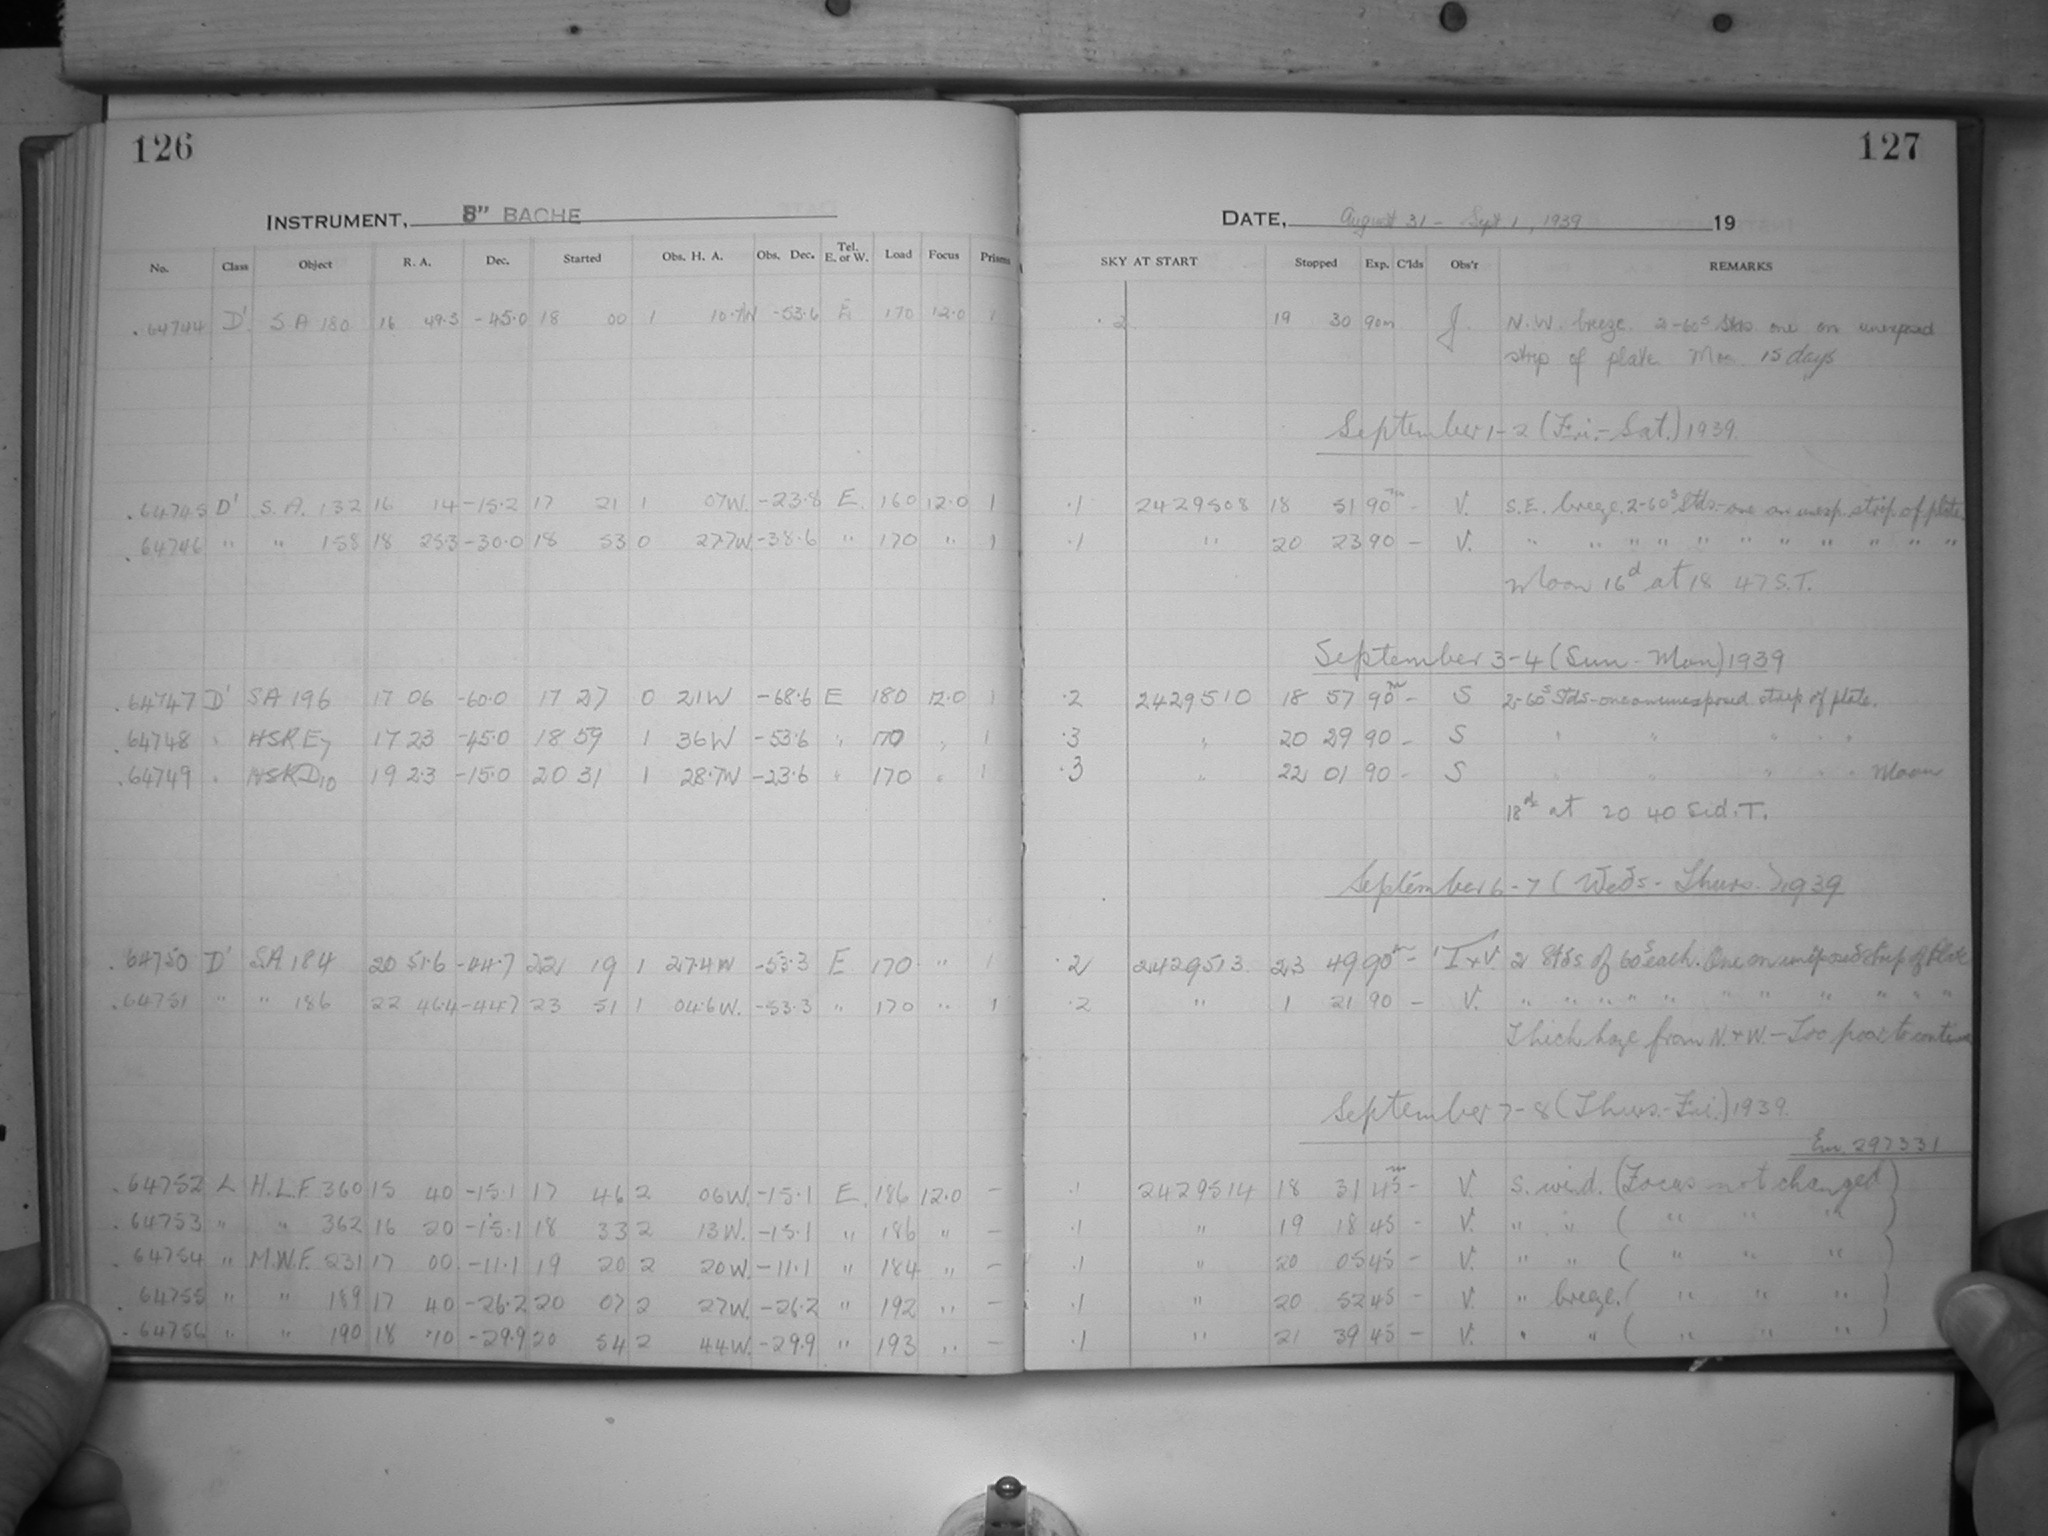 126
127
INSTRUMENT, 8" BACHE
DATE, August 31 - Sept 1, 1939 19
No. Class Object R. A. Dec. Started Obs. H. A. Obs. Dec. Tel. E. or W. Load Focus Prisms SKY AT START Stopped Exp. C'lds Obs'r REMARKS
64744 D' SA 180 16 49.3 -45.0 18 00 1 10.7W -53.6 E 170 12.0 1 .2 19 30 90m J. N.W. breeze. 2-60s Stds one on unexposed
strip of plate Moon 15 days
September 1-2 (Fri.-Sat.) 1939.
64745 D' S.A. 132 16 14 -15.2 17 21 1 07W. -23.8 E. 160 12.0 1 .1 2429508 18 51 90m - V. S.E. breeze. 2-60s Stds.-one on unexp. strip of plate
64746 " " 158 18 25.3 -30.0 18 53 0 27.7W -38.6 " 170 " 1 .1 " 20 23 90 - V. " " " " " " " " " " "
Moon 16d at 18 47 S.T.
September 3-4 (Sun-Mon) 1939
64747 D' SA 196 17 06 -60.0 17 27 0 21W -68.6 E 180 12.0 1 .2 2429510 18 57 90m - S 2-60s Stds-one on unexposed strip of plate.
64748 " HSRE7 17 23 -45.0 18 59 1 36W -53.6 " 170 " 1 .3 " 20 29 90 - S " " " " "
64749 " HSRD10 19 2.3 -15.0 20 31 1 28.7W -23.6 " 170 " 1 .3 " 22 01 90 - S " " " " " Moon
18d at 20 40 Sid.T.
September 6-7 (Weds- Thurs.) 1939
64750 D' SA 184 20 51.6 -44.7 22 19 1 27.4W -53.3 E 170 " 1 .2 2429513 23 49 90m - I+V. 2 Stds of 60s each. One on unexposed strip of Plate
64751 " " 186 22 46.4 -44.7 23 51 1 04.6W. -53.3 " 170 " 1 .2 " 1 21 90 - V. " " " " " " " " " " "
Thick haze from N.+W. - Too poor to continue
September 7-8 (Thurs.-Fri.) 1939.
Em. 297331
64752 L H.L.F. 360 15 40 -15.1 17 46 2 06W. -15.1 E. 186 12.0 - .1 2429514 18 31 45m - V. S. wind. (Focus not changed)
64753 " " 362 16 20 -15.1 18 33 2 13W. -15.1 " 186 " - .1 " 19 18 45 - V. " " ( " " " )
64754 " M.W.F. 231 17 00 -11.1 19 20 2 20W. -11.1 " 184 " - .1 " 20 05 45 - V. " " ( " " " )
64755 " " 189 17 40 -26.2 20 07 2 27W. -26.2 " 192 " - .1 " 20 52 45 - V. " breeze. ( " " " )
64756 " " 190 18 10 -29.9 20 54 2 44W. -29.9 " 193 " - .1 " 21 39 45 - V. " " ( " " " )